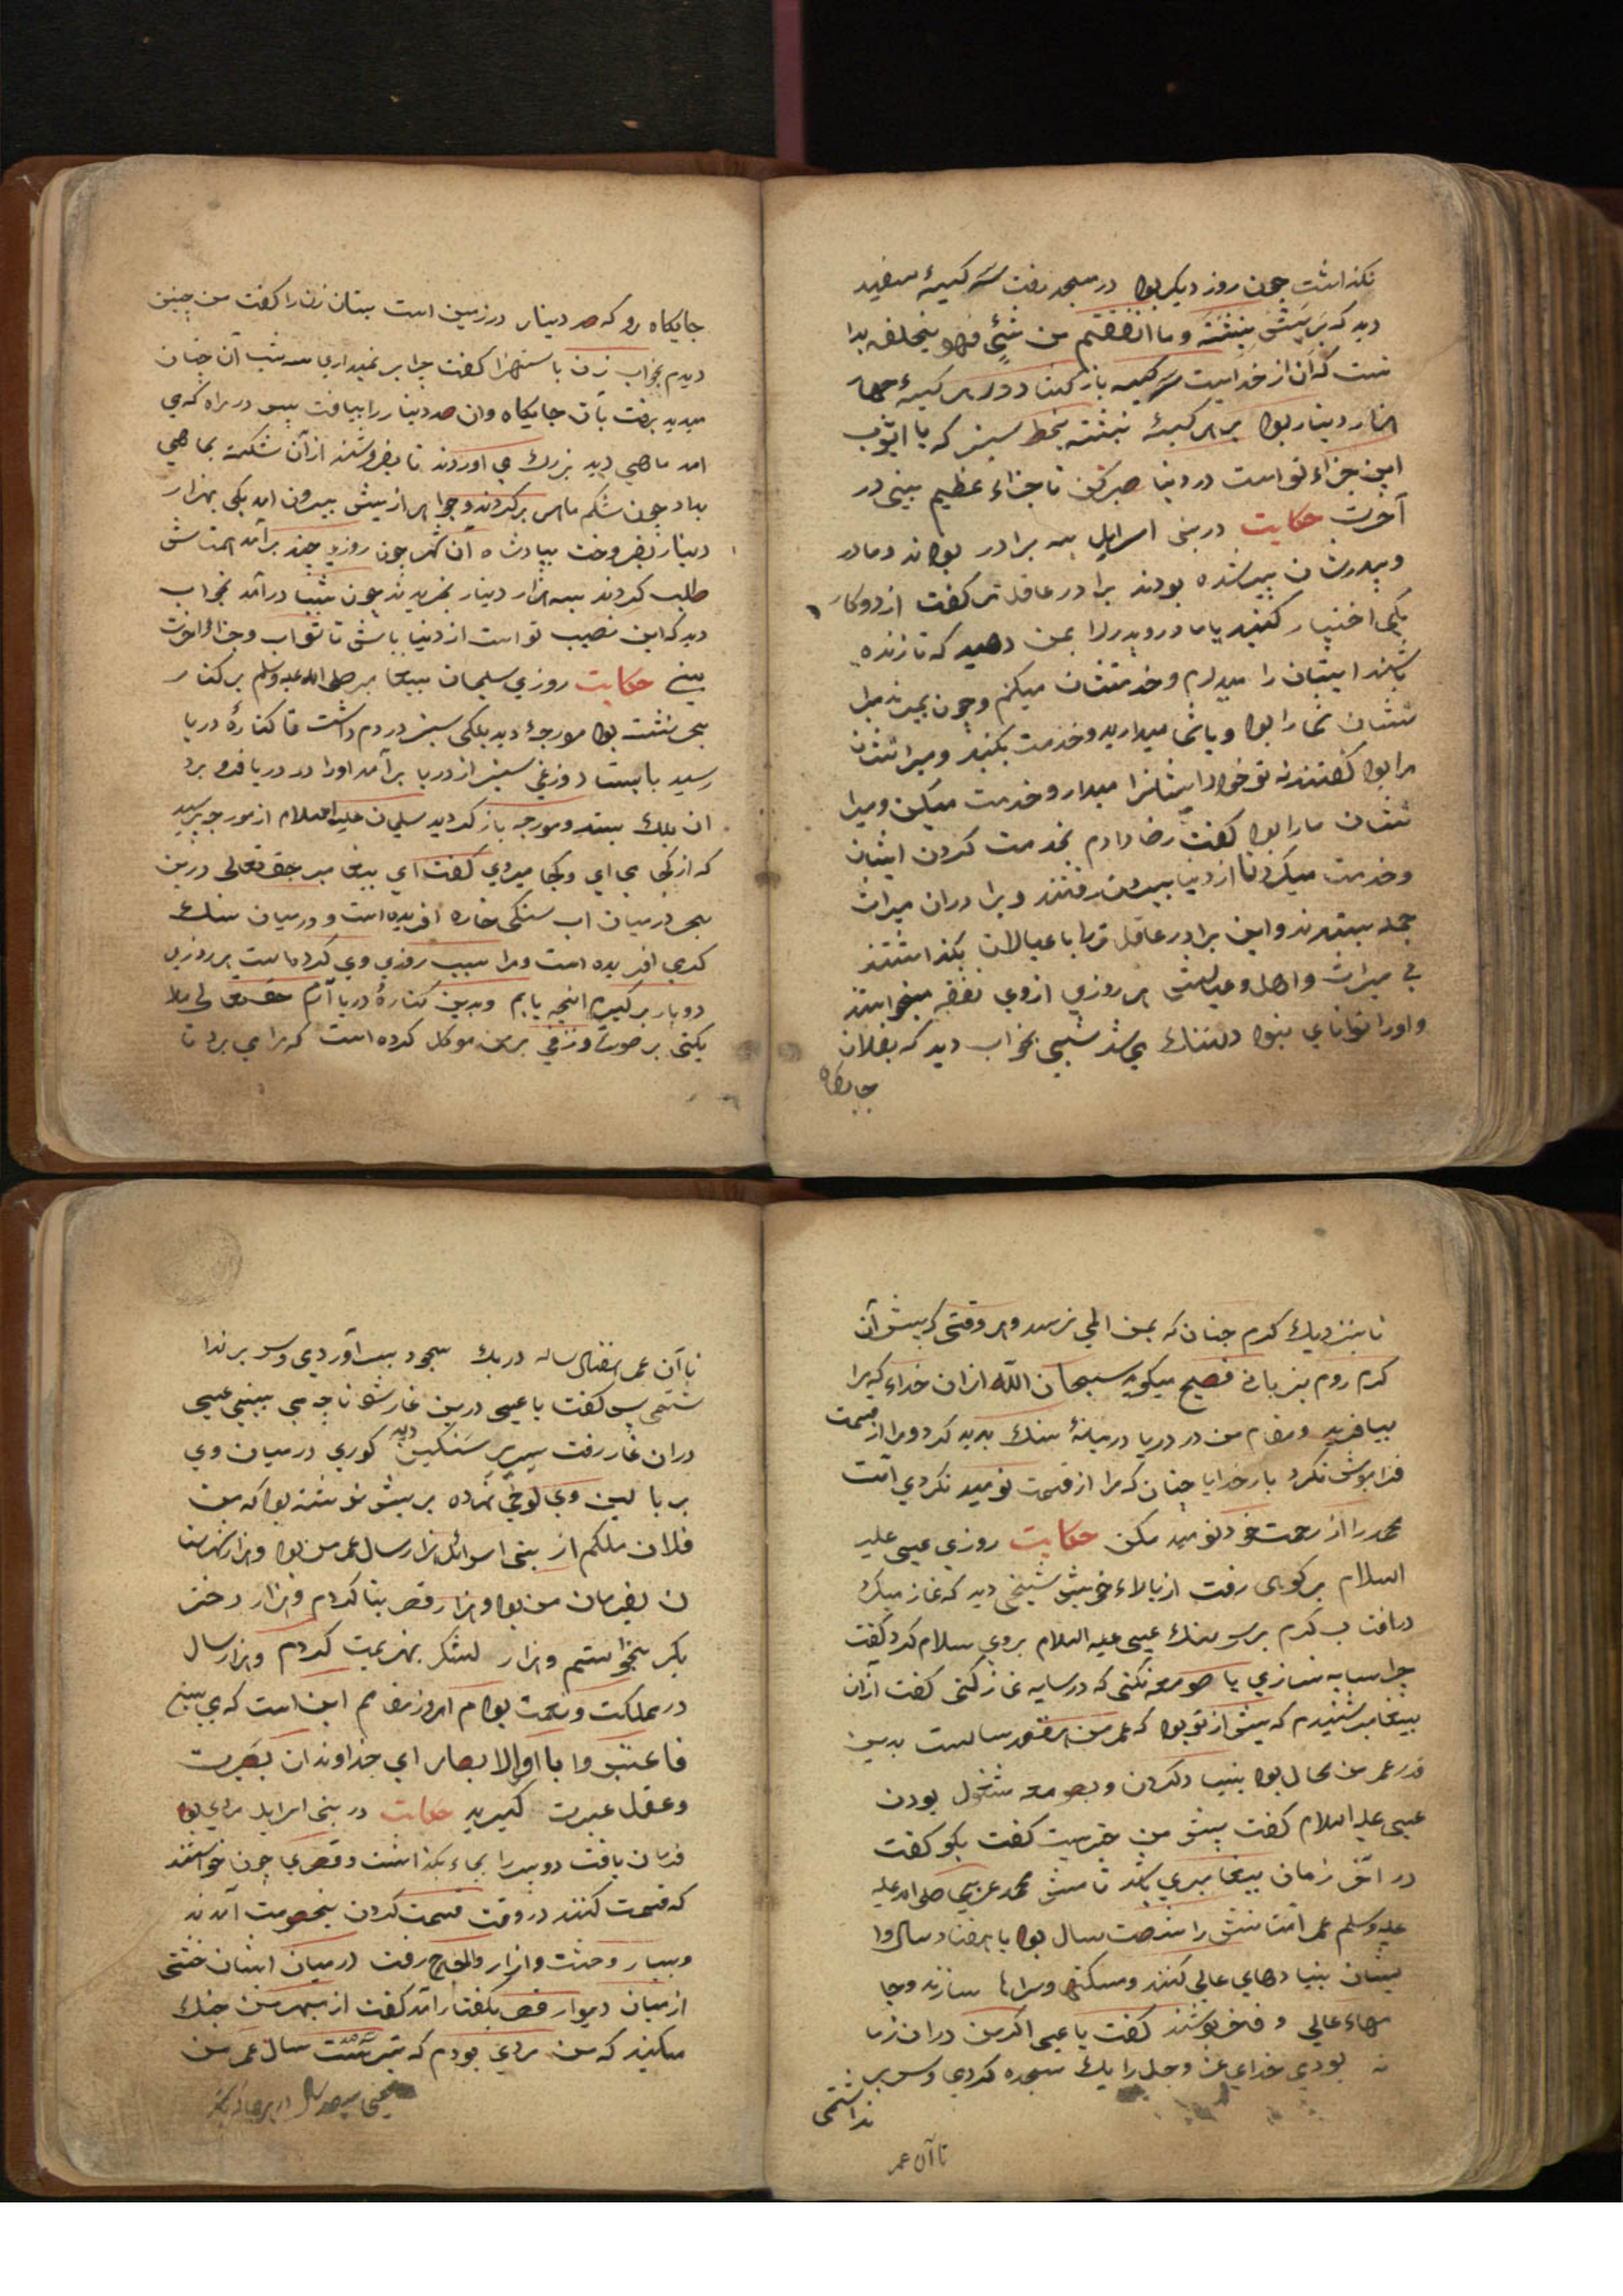 نکذاشت چون روز دیکر بود در مسجد رفت سه کیسهٔ سفید
دید که بر پیشش نبشته وما انفقتم من شئ فهو یخلفه بدا
نست که آن از خداست سر کیسه باز کشاد در هر کیسهٔ چهار
هزار دینار بود بر هر کیسهٔ نبشته بخط سبز که یا ایوب
این جزاء تو است در دنیا صبر کن تا جزاء عظیم بینی در
آخرت حکایت در بنی اسرایل سه برادر بودند ومادر
وپدرشان پیر شده بودند برادر عاقل تر کفت از دو کار
یکی اختیار کنید یا مادر وپدر را بمن دهید که تا زنده
باشند ایشان را میدارم وخدمتشان میکنم وچون بمیرند میرا
ثشان شما را بود ویا شما میدارید وخدمت بکنید ومیراثشان
مرا بود کفتند نه تو خود ایشانرا میدار وخدمت میکن ومیرا
ثشان ما را بود کفت رضا دادم بخدمت کردن ایشان
وخدمت میکرد تا از دنیا بیرون رفتند وبرادران میراث
جمله ببردند واین برادر عاقل را با عیالان بکذاشتند
بی میراث واهل وعیالش هر روزی از وی نفقه میخواستند
واورا توانای نبود دلتنک می شد شبی بخواب دید که بفلان
جایکاه
جایکاه رو که صد دینار در زمین است بستان زن را کفت من چنین
دیدم بخواب زن باستهزا کفت چرا بر نمیداری سه شب آن چنان
میدید برفت بآن جایکاه وان صد دینار را بیافت پس در راه که می
امد ماهی دید بزرك می اوردند تا بفروشند از آن شکسته بماهی
بداد چون شکم ماهی بر کردند دو جواهر از پیش بیرون امد یکی بهزار
دینار بفروخت بپادشاه آن شهر چون روزی چند برآمد همتاش
طلب کردند بسه هزار دینار بخریدند چون شب درآمد بخواب
دید که این نصیب تو است از دنیا باش تا ثواب وجزا آخرت
بینی حکایت روزی سلیمان پیغامبر صلی الله علیه وسلم بر کنار
بحر نشته بود مورچهٔ دید بلکی سبز در دم داشت تا کنارهٔ دریا
رسید بایستاد وزغی سبز از دریا برآمد اورا در دریا فرو برد
ان بلك بستد ومورچه باز کردید سلیمان علیه السلام از مورچه پرسید
که از کجا می ای وکجا میروی کفت ای پیغامبر حق تعالی درین
بحر در میان اب سنکی خاره افریده است ودر میان سنك
کرمی افریده است ومرا سبب روزی وی کرده است هر روزی
دو بار برکیرم انچه یابم وبدین کنارهٔ دریا آرم حق تعالی ملا
یکتی بر صورت وزغی برمن موکل کرده است که مرا می برد تا
تا بنزدیك کرم چنان که بمن المی نرسد وهر وقتی که پیش آن
کرم روم بزبانی فصیح میکوید سبحان الله ازان خداء که مرا
بیافرید ومقام من در دریا درمیانهٔ سنك پدید کرد ومرا از قسمت
فراموش نکرد بار خدایا چنان که مرا از قسمت نومید نکردی امت
محمد را از رحمت خود نومید مکن حکایت روزی عیسی علیه
السلام بر کوهی رفت از بالاء خویش شیخی دید که نماز میکرد
در افتاب کرم بر سر سنك عیسی علیه السلام بر وی سلام کرد کفت
چرا سایه نسازی یا صومعه نکنی که در سایه نماز کنی کفت ازان
پیغامبر شنیدم که پیش از تو بود که عمر من هفتصد سالست بدین
قدر عمر من محال بود بنیاد کردن وبصومعه مشغول بودن
عیسی علیه السلام کفت پیش من خبریست کفت بکو کفت
در آخر زمان پیغامبری باشد نامش محمد عربی صلی الله علیه
علیه وسلم عمر امتانش را شصت سال بود یا هفتاد سال وا
یشان بنیادهای عالی کنند ومسکنها وسراها سازند وجا
مهاء عالی وفخر پوشند کفت یا عیسی اکر من دران زما
نه بودی خدای عز وجل را یك سجده کردی وسر بر
نداشتمی
تا آن عمر
تا آن عمر هفتاد ساله در یك سجود بسر آوردی وسر برندا
شتمی پس کفت یا عیسی درین غار شو تا چه می بینی عیسی
دران غار رفت سریر سنکین دید کوری در میان وی
بر بالین وی لوحی نهاده بر پیش نوشته بود که من
فلان ملکم از بنی اسرائل هزار سال عمر من بود وهزار شهرستا
ن بفرمان من بود وهزار قصر بنا کردم وهزار دختر
بکر بخواستم وهزار لشکر بهزیمت کردم وهزار سال
در مملکت ونعمت بودم امروز مقامم این است که می بینی
فاعتبروا یا اولالابصار ای خداوندان بصیرت
وعقل عبرت کیرید حکایت در بنی اسرایل مردی بود
فرمان یافت دو پسر را بجاء بکذاشت وقصری چون خواستند
که قسمت کنند در وقت قسمت کردن بخصومت آمدند
وبسیار وحشت وازار والحاح رفت در میان ایشان خشتی
از میان دیوار قصر بکفتار آمد کفت از بهر من جنك
میکنید که من مردی بودم که سیصد وشصت سال عمر من